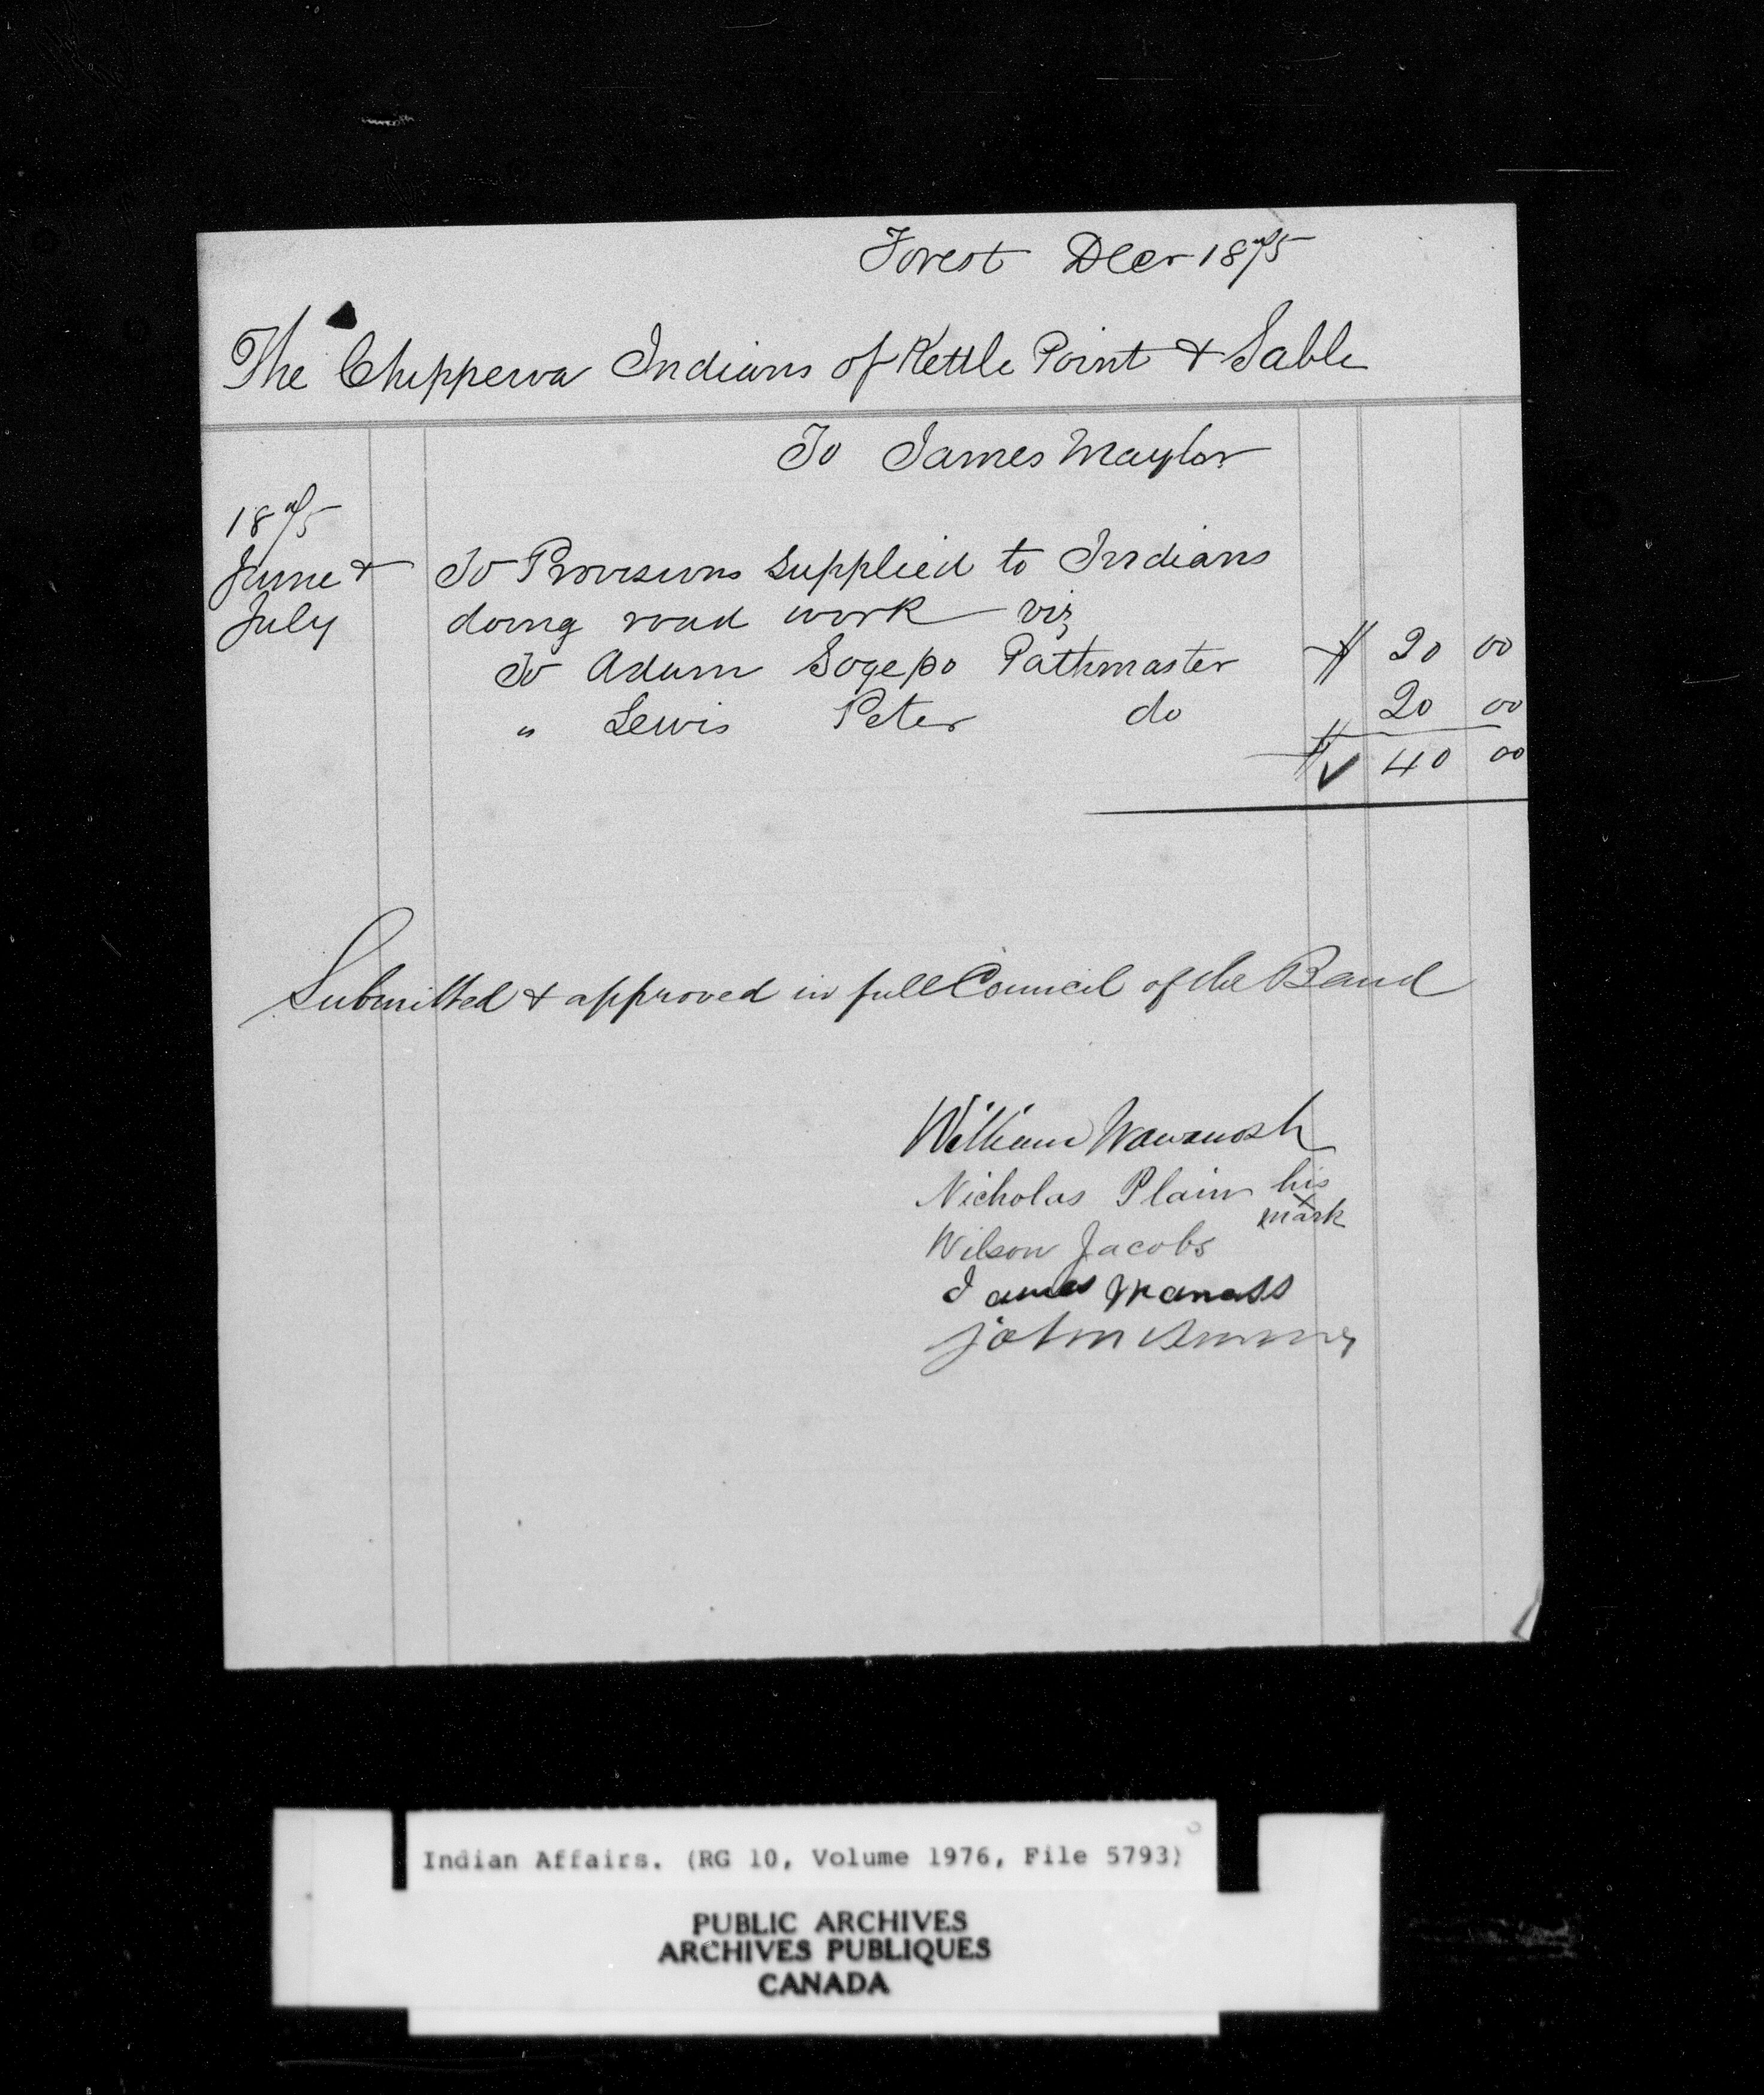 Forest Decr 1875
The Chippewa Indians of Kettle Point & Sable
To James Maylor
1875
June & To Provisions Supplied to Indians
July doing road work viz
To Adam Sogepo Pathmaster $ 20 00
" Lewis Peter do 20 00
$ ✓ 40 00
Submitted & approved in full Council of the Band
William Wawanosh
Nicholas Plain his
x
mark
Wilson Jacobs
James Manass
John
Indian Affairs. (RG 10, Volume 1976, File 5793)
PUBLIC ARCHIVES
ARCHIVES PUBLIQUES
CANADA